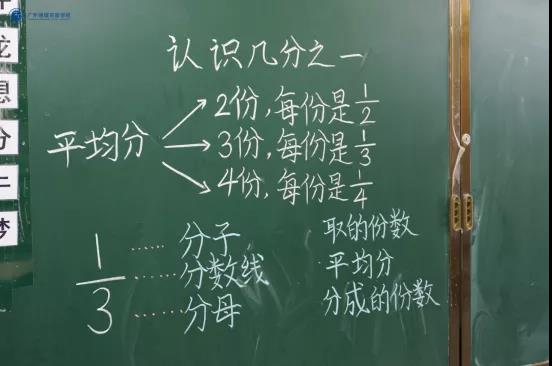 认识几分之一
平均分
2份,每份是1/2
3份,每份是1/3
4份,每份是1/4
1/3
分子 取的份数
分数线 平均分
分母 分成的份数
息
分
梦